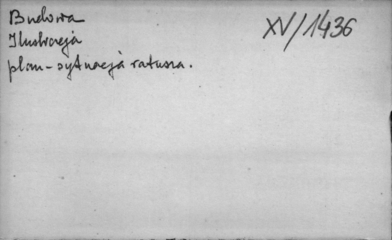 Budowa
XV/1436
Ilustracja
plan-sytuacja ratusza.